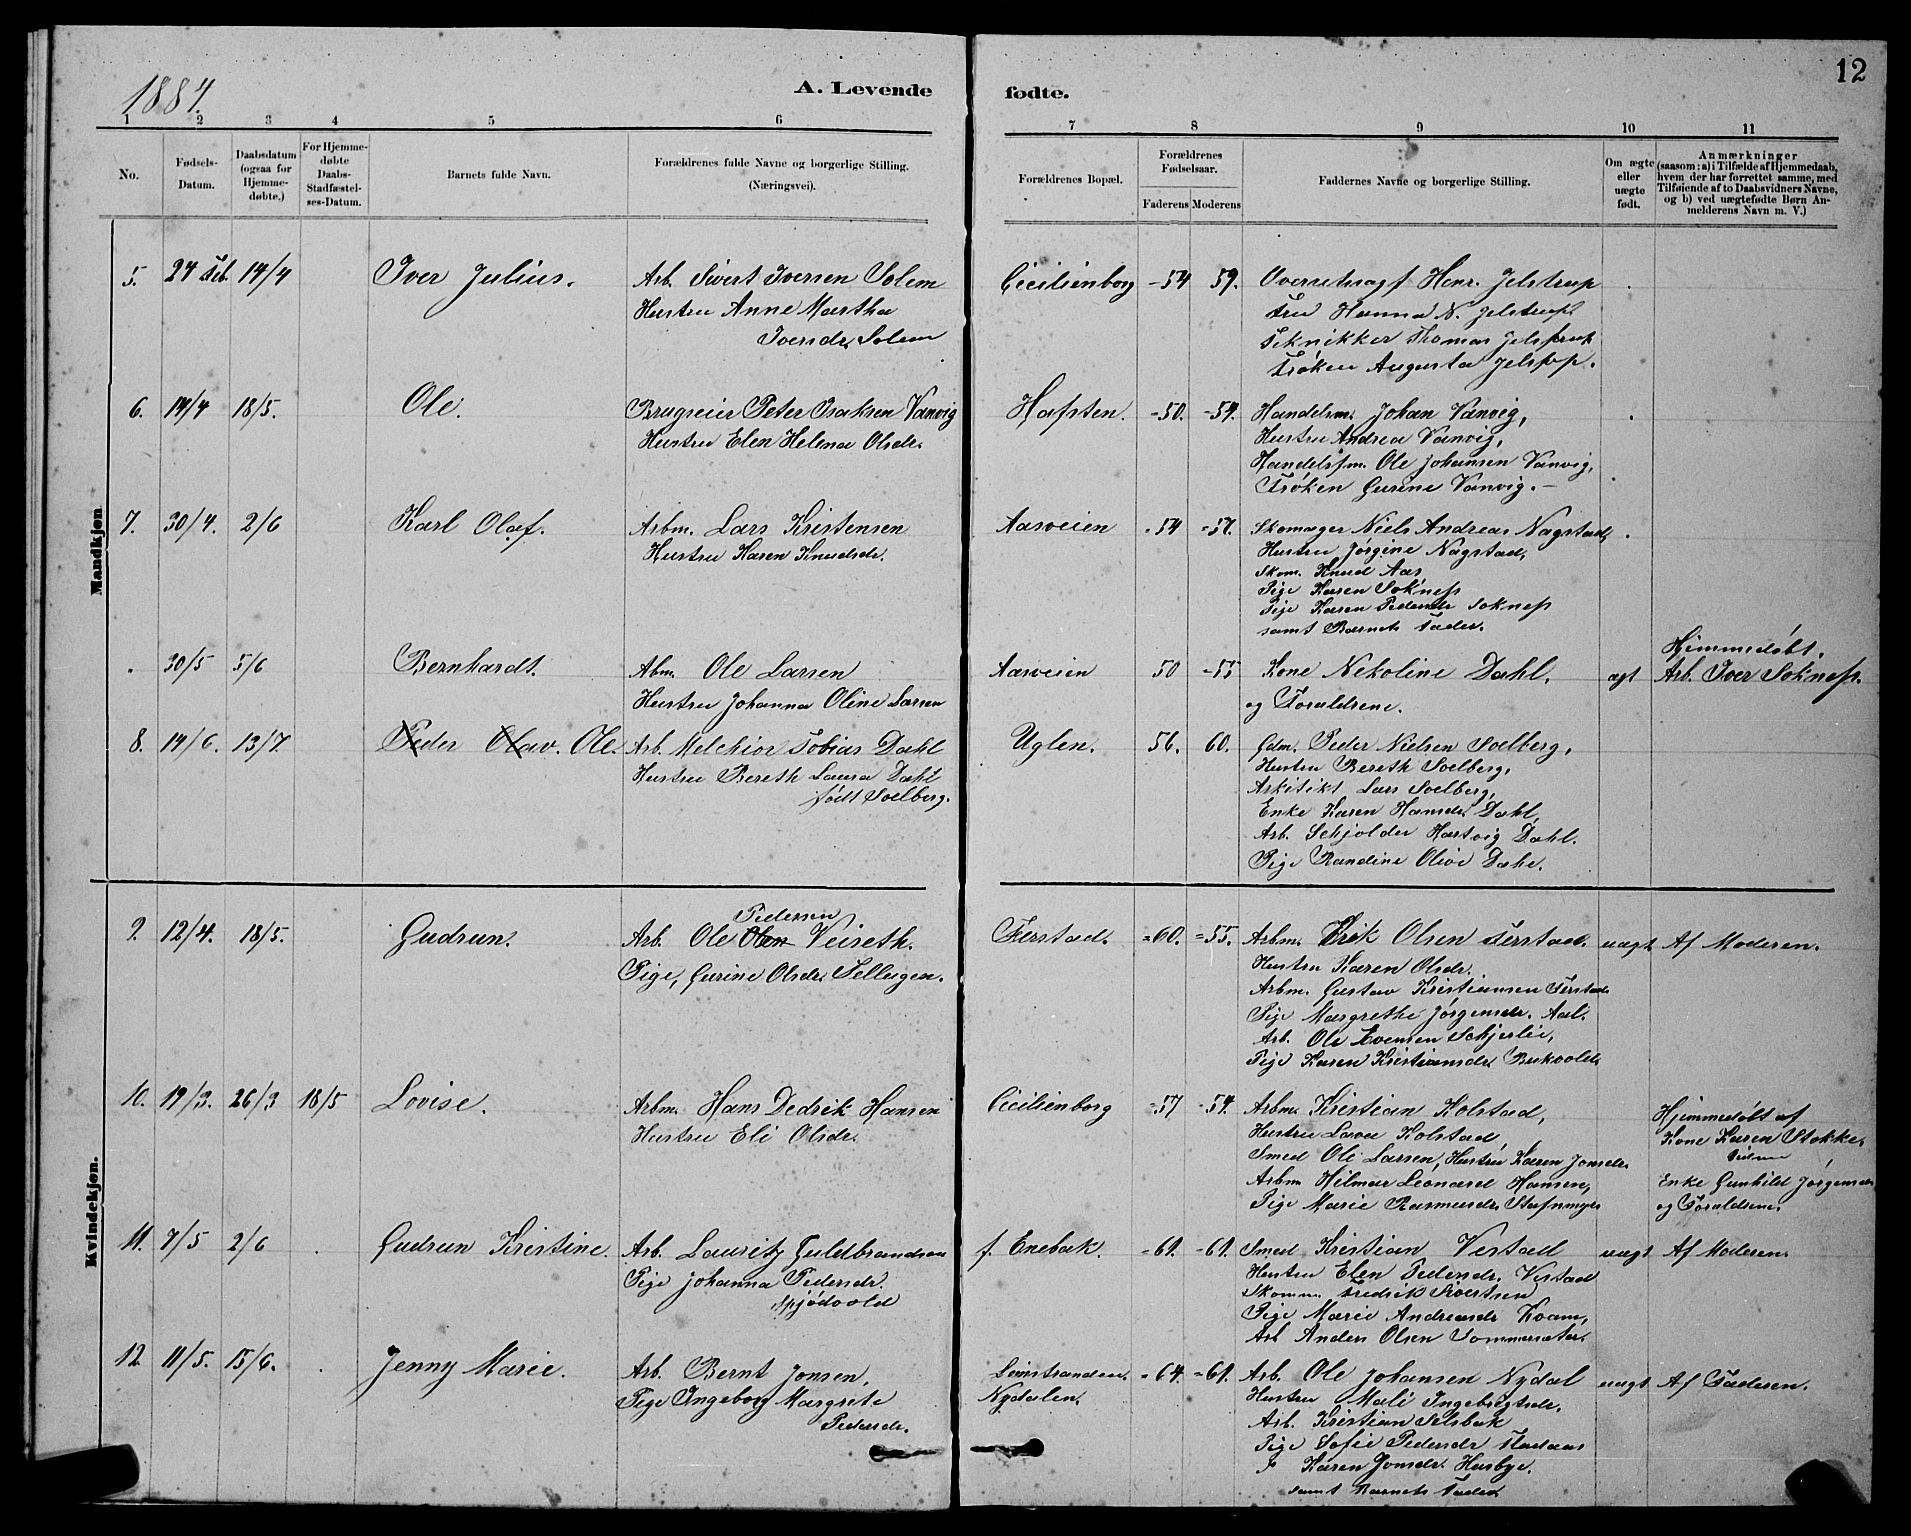 1884.
A. Levende
fødte.
12
1 2 3 4 5 6 7 8 9 10 11
No.
Fødsels-
Datum.
Daabsdatum
(ogsaa for
Hjemme-
døbte.)
For Hjemme-
døbte
Daabs-
Stadfæstel-
ses-Datum.
Barnets fulde Navn.
Forældrenes fulde Navne og borgerlige Stilling.
(Næringsvei).
Forældrenes Bopæl.
Forældrenes
Fødselsaar.
Faderens Moderens
Faddernes Navne og borgerlige Stilling.
Om ægte
eller
uægte
født.
Anmærkninger
(saasom: a) i Tilfælde af Hjemmedaab,
hvem der har forrettet samme, med
Tilføiende af to Daabsvidners Navne,
og b) ved uægtefødte Børn An-
melderens Navn m. V.)
Mandkjøn
5. 24 Feb. 14/4 Iver Julius.
Arb. Sivert Iversen Solem
Hustru Anne Martha
Iversdr. Solem
Cecilienborg -54 59.
Overretssagf Henr. Jelstrup
Fru Hanna N. Jelstrup
Teknikker Thomas Jelstrup
Frøken Augusta Jelstrup.
6. 14/4 18/5. Ole.
Brugseier Peter Isaksen Vanvig
Hustru Elen Helena Olsdr.
Hafsten. -50. -54.
Handelsm. Johan Vanvig,
Hustru Andrea Vanvig,
Handelsfm. Ole Johansen Vanvig,
Frøken Gurine Vanvig.-
7. 30/4. 2/6 Karl Olaf.
Arbm. Lars Kristensen
Hustru Karen Knudsdr.
Aasveien -54 -57.
Skomager Niels Andreas Nagstad,
Hustru Jørgine Nagstad,
Skom. Knud Aas
Pige Karen Soknes
Pige Karen Pedersdr Soknes
samt Barnets Fader.
30/5 5/6 Bernhardt.
Abm. Ole Larsen
Hustru Johanna Oline Larsen
Aasveien 50 -55
Kone Nekoline Dahl,
og Forældrene.
ægt
Hjemmedøbt.
Arb. Iver Soknes.
8. 14/6. 13/7 Peder Olav. Ole.
Arb. Melchior Tobias Dahl
Hustru Bereth Laura Dahl
født Solberg.
Uglen. 56. 60.
Gdm. Peder Nielsen Soelberg,
Hustru Bereth Soelberg,
Arkitekt Lars Soelberg,
Enke Karen Hansdr. Dahl,
Arb. Schjolder Hartvig Dahl.
Pige Randine Olive Dahl.
Kvindekjøn.
9. 12/4. 18/5. Gudrun.
Pedersen
Arb. Ole Olsen Veiseth.
Pige, Gurine Olsdr. Sellugen.
Ferstad. -60. -55.
Arbm. Erik Olsen Ferstad.
Hustru Karen Olsdr.
Arbm. Gustav Kristiansen Ferstad
Pige Margrethe Jørgensdr. Aal.
Arb. Ole Evensen Schjerlie,
Pige Karen Kristiansdr Bukvold
uægt Af Moderen.
10. 19/3. 26/3 18/5 Lovise.
Arbm. Hans Dedrik Hansen
Hustru Eli Olsdr.
Cecilienborg -57 -54.
Arbm. Kristian Kolstad,
Hustru Lava Kolstad,
Smed Ole Larsen, Hustru Karen Jonsdr.
Arbm Hilmar Leonard Hansen,
Pige Marie Rasmusdr.
Hjemmedøbt af
Kone Karen Stokke,
Enke Gunhild Jørgensdr
og Forældrene.
11. 7/5 2/6 Gudrun Kristine.
Arb. Lauritz Guldbrandsen
Pige Johanna Pedersdr.
Spjødvold
f. Enebak. -61. -61.
Smed Kristian Vestad
Hustru Elen Pedersdr. Vestad
Skomm. Fredrik Sivertsen
Pige Marie Andreasdr Koam,
Arb Anders Olsen Sommersæter.
uægt Af Moderen.
12. 11/5. 15/6. Jenny Marie.
Arb. Bernt Jonsen,
Pige Ingeborg Margrete
Pedersdr.
Nydalen. -64. -61.
Arb. Ole Johansen Nydal
Hustru Mali Ingebrigtsdr.
Arb. Kristian Selsbak
Pige Sofie Pedersdr Stadaas
Karen Jonsdr. Husbye.
samt Barnets Fader
uægt Af Faderen.